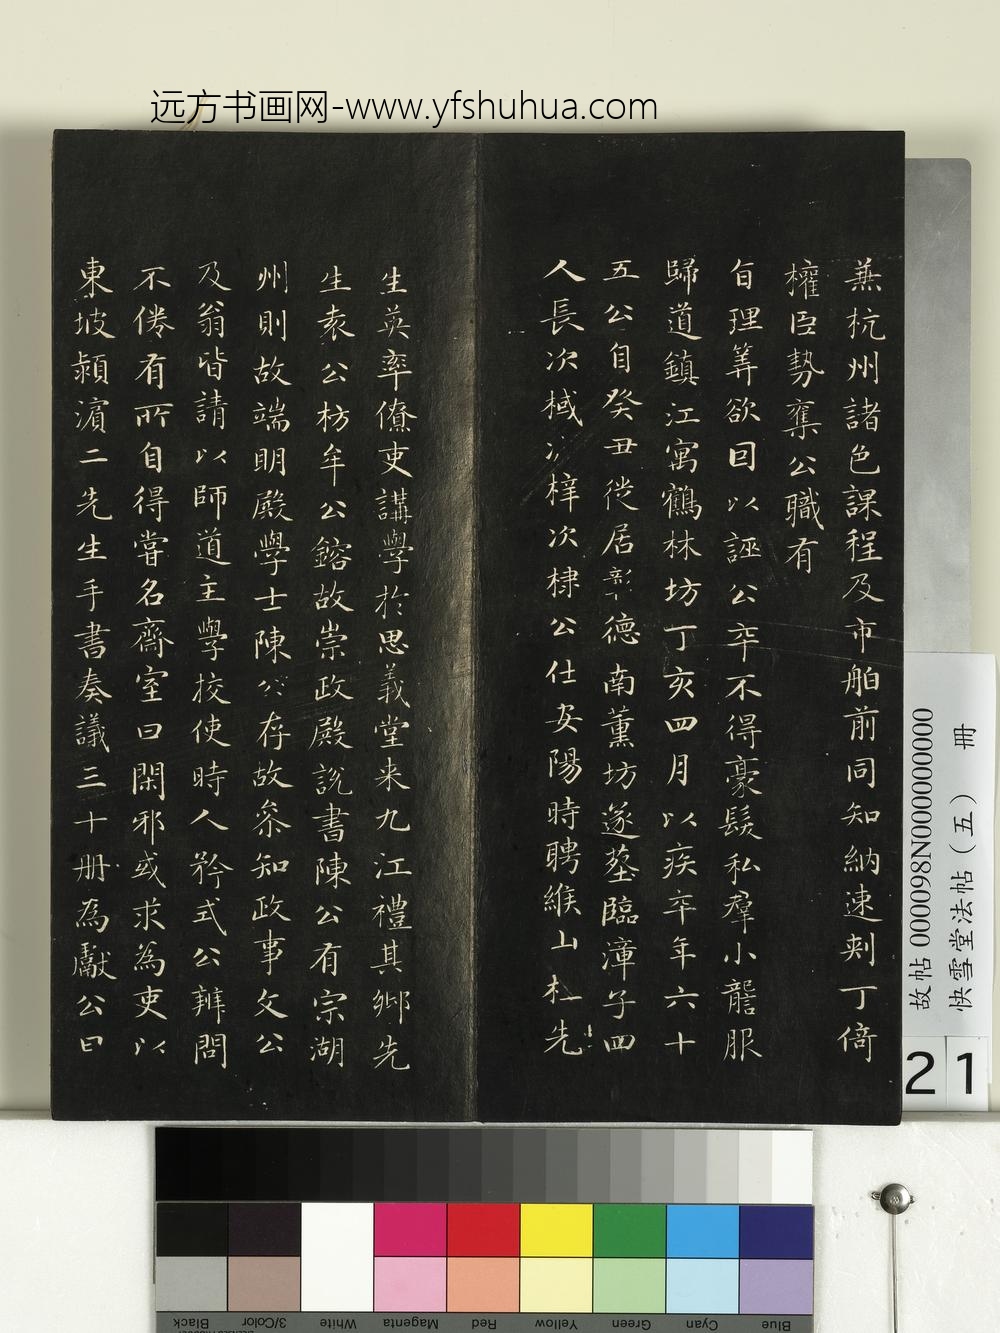 远方书画网-www.yfshuhua.com
兼杭州諸色課程及市舶前同知納速剌丁倚
權臣勢奪公職有
旨理筭欲因以誣公卒不得豪髮私羣小讋服
歸道鎮江寓鶴林坊丁亥四月以疾卒年六十
五公自癸丑徙居彰德南薰坊遂塟臨漳子四
人長次棫次梓次棣公仕安陽時聘緱山杜先
生英率僚吏講學於思義堂来九江禮其鄉先
生袁公枋牟公鎔故崇政殿說書陳公有宗湖
州則故端明殿學士陳公存故叅知政事文公
及翁皆請以師道主學校使時人矜式公辨問
不倦有所自得嘗名齋室曰閑邪或求為吏以
東坡潁濵二先生手書奏議三十册為獻公曰
故帖 000098N000000000
快雪堂法帖（五） 冊
21
Black
3/Color
White
Magenta
Red
Yellow
Green
Cyan
Blue